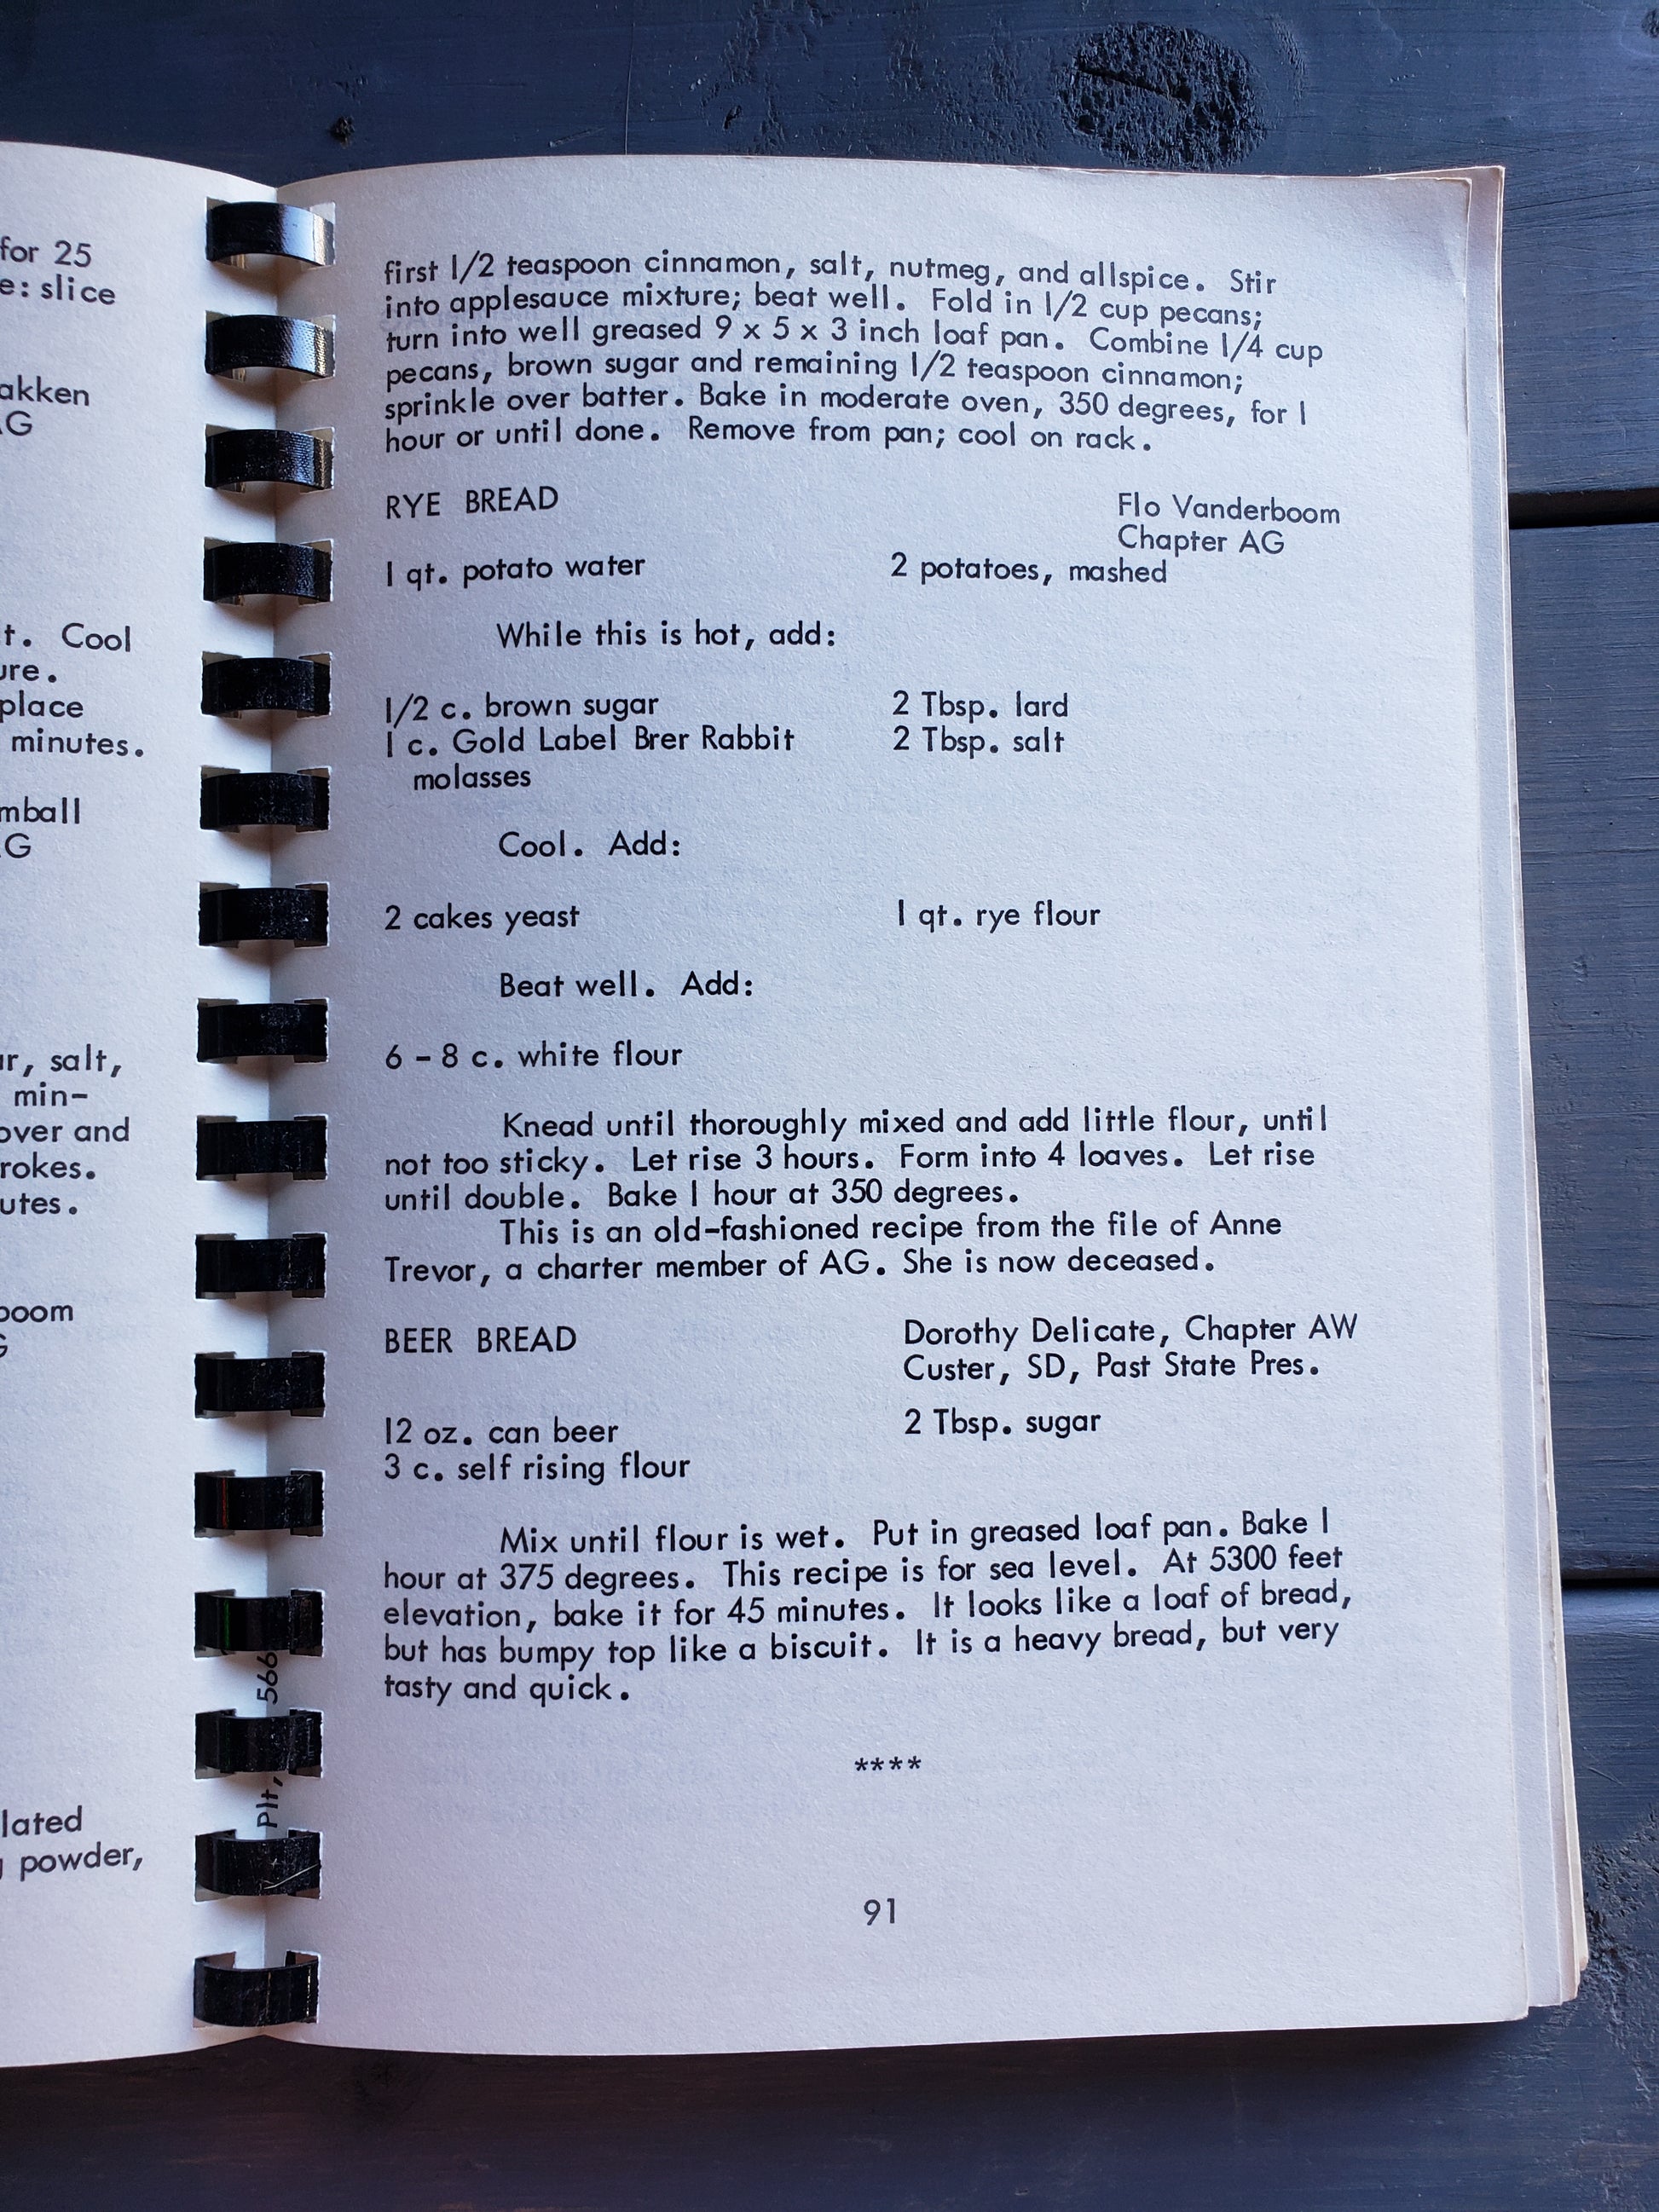 for 25
e: slice
akken
AG
t. Cool
ure.
place
minutes.
mball
G
ar, salt,
min-
over and
rokes.
utes.
boom
G
lated
powder,
Plt, 566
first 1/2 teaspoon cinnamon, salt, nutmeg, and allspice. Stir
into applesauce mixture; beat well. Fold in 1/2 cup pecans;
turn into well greased 9 x 5 x 3 inch loaf pan. Combine 1/4 cup
pecans, brown sugar and remaining 1/2 teaspoon cinnamon;
sprinkle over batter. Bake in moderate oven, 350 degrees, for 1
hour or until done. Remove from pan; cool on rack.
RYE BREAD
Flo Vanderboom
Chapter AG
1 qt. potato water 2 potatoes, mashed
While this is hot, add:
1/2 c. brown sugar 2 Tbsp. lard
1 c. Gold Label Brer Rabbit 2 Tbsp. salt
molasses
Cool. Add:
2 cakes yeast 1 qt. rye flour
Beat well. Add:
6 - 8 c. white flour
Knead until thoroughly mixed and add little flour, until
not too sticky. Let rise 3 hours. Form into 4 loaves. Let rise
until double. Bake 1 hour at 350 degrees.
This is an old-fashioned recipe from the file of Anne
Trevor, a charter member of AG. She is now deceased.
BEER BREAD Dorothy Delicate, Chapter AW
Custer, SD, Past State Pres.
12 oz. can beer 2 Tbsp. sugar
3 c. self rising flour
Mix until flour is wet. Put in greased loaf pan. Bake 1
hour at 375 degrees. This recipe is for sea level. At 5300 feet
elevation, bake it for 45 minutes. It looks like a loaf of bread,
but has bumpy top like a biscuit. It is a heavy bread, but very
tasty and quick.
****
91